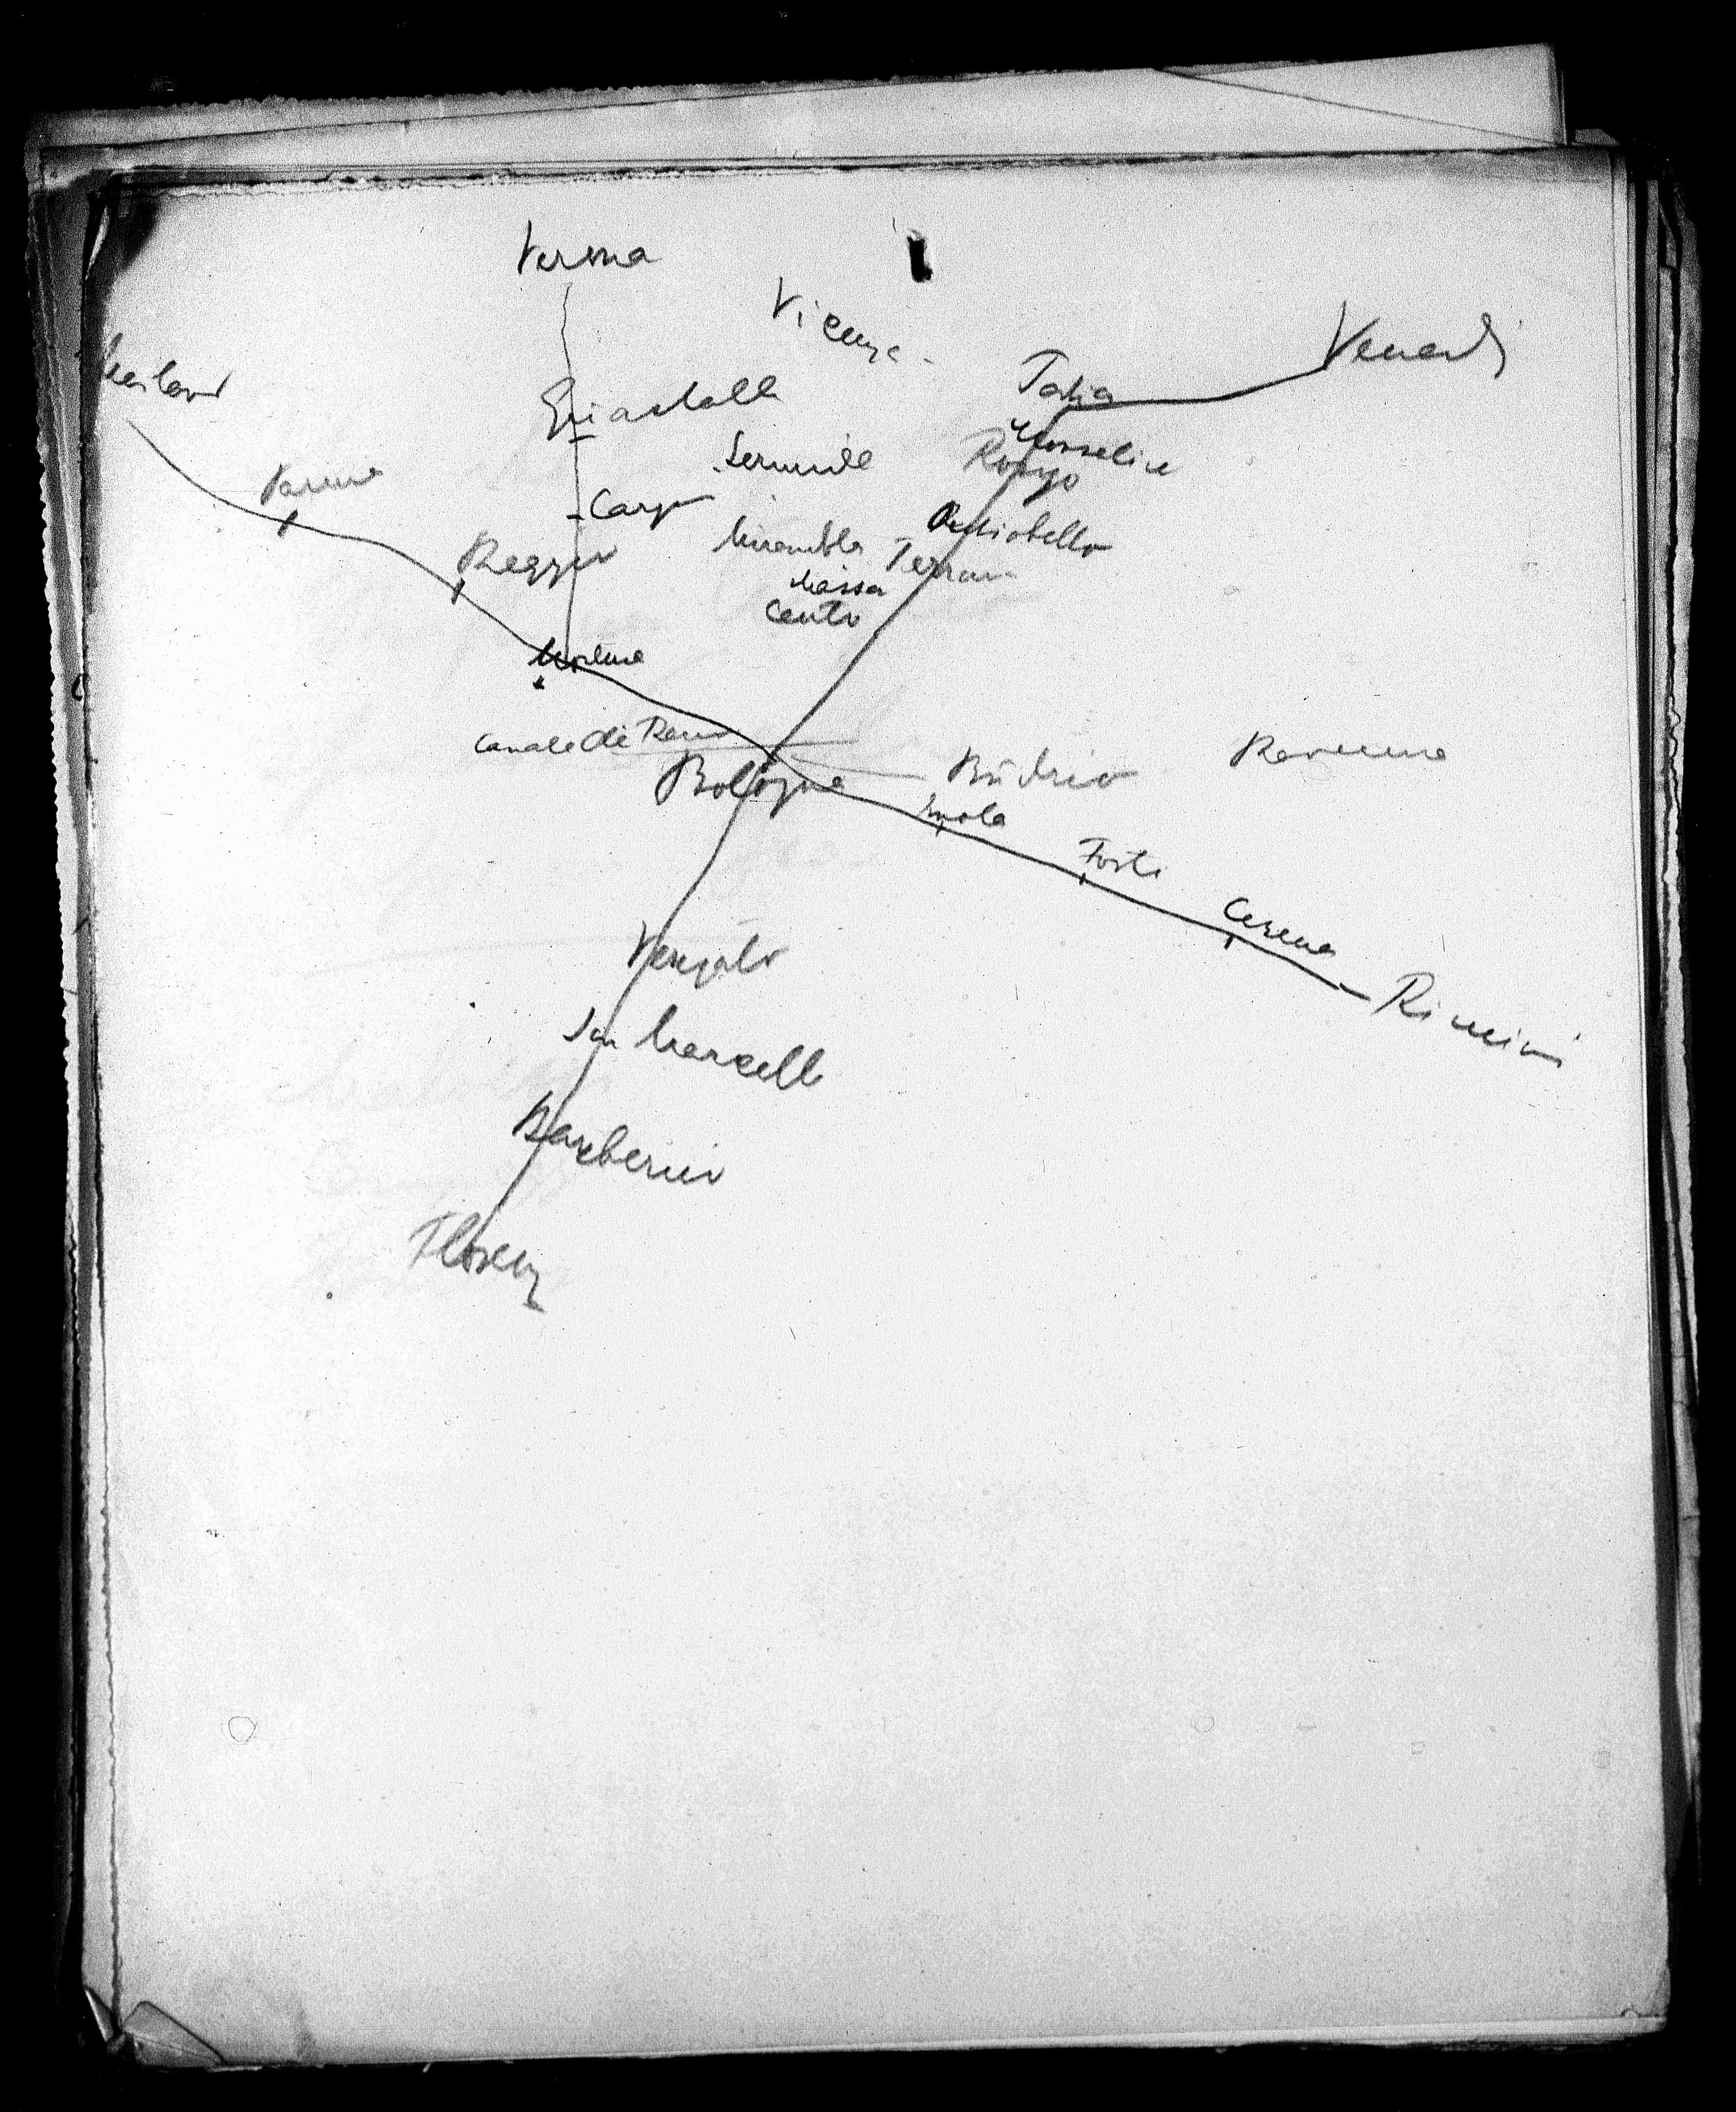 Verona
Vicenza
Venedi
Mailand
Padua
Guastalla
Monselice
Sermide
Rovigo
Parma
Carpi
Occhiobello
Mirandola
Reggio
Ferrara
Massa
Cento
Modena
Canale di Reno
Budrio
Ravenna
Bologna
Imola
Forli
Cesena
Vergato
Rimini
San Marcello
Barberino
Florenz